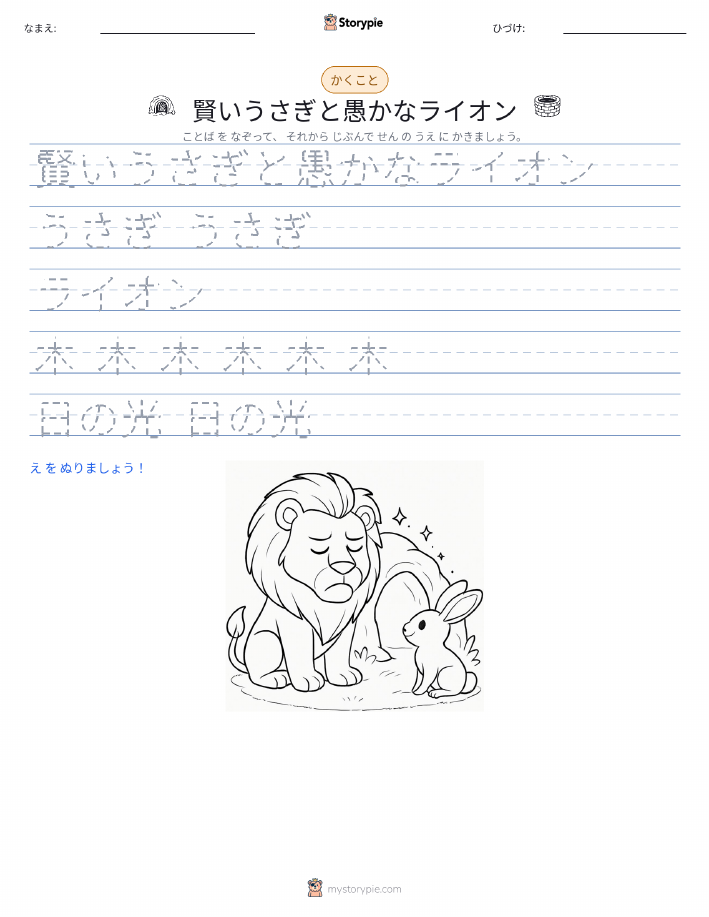 なまえ:
Storypie
ひづけ:
かくこと
賢いうさぎと愚かなライオン
ことば を なぞって、 それから じぶんで せん の うえ に かきましょう。
賢いうさぎと愚かなライオン
うさぎ うさぎ
ライオン
木 木 木 木 木 木
日の光 日の光
え を ぬりましょう！
mystorypie.com